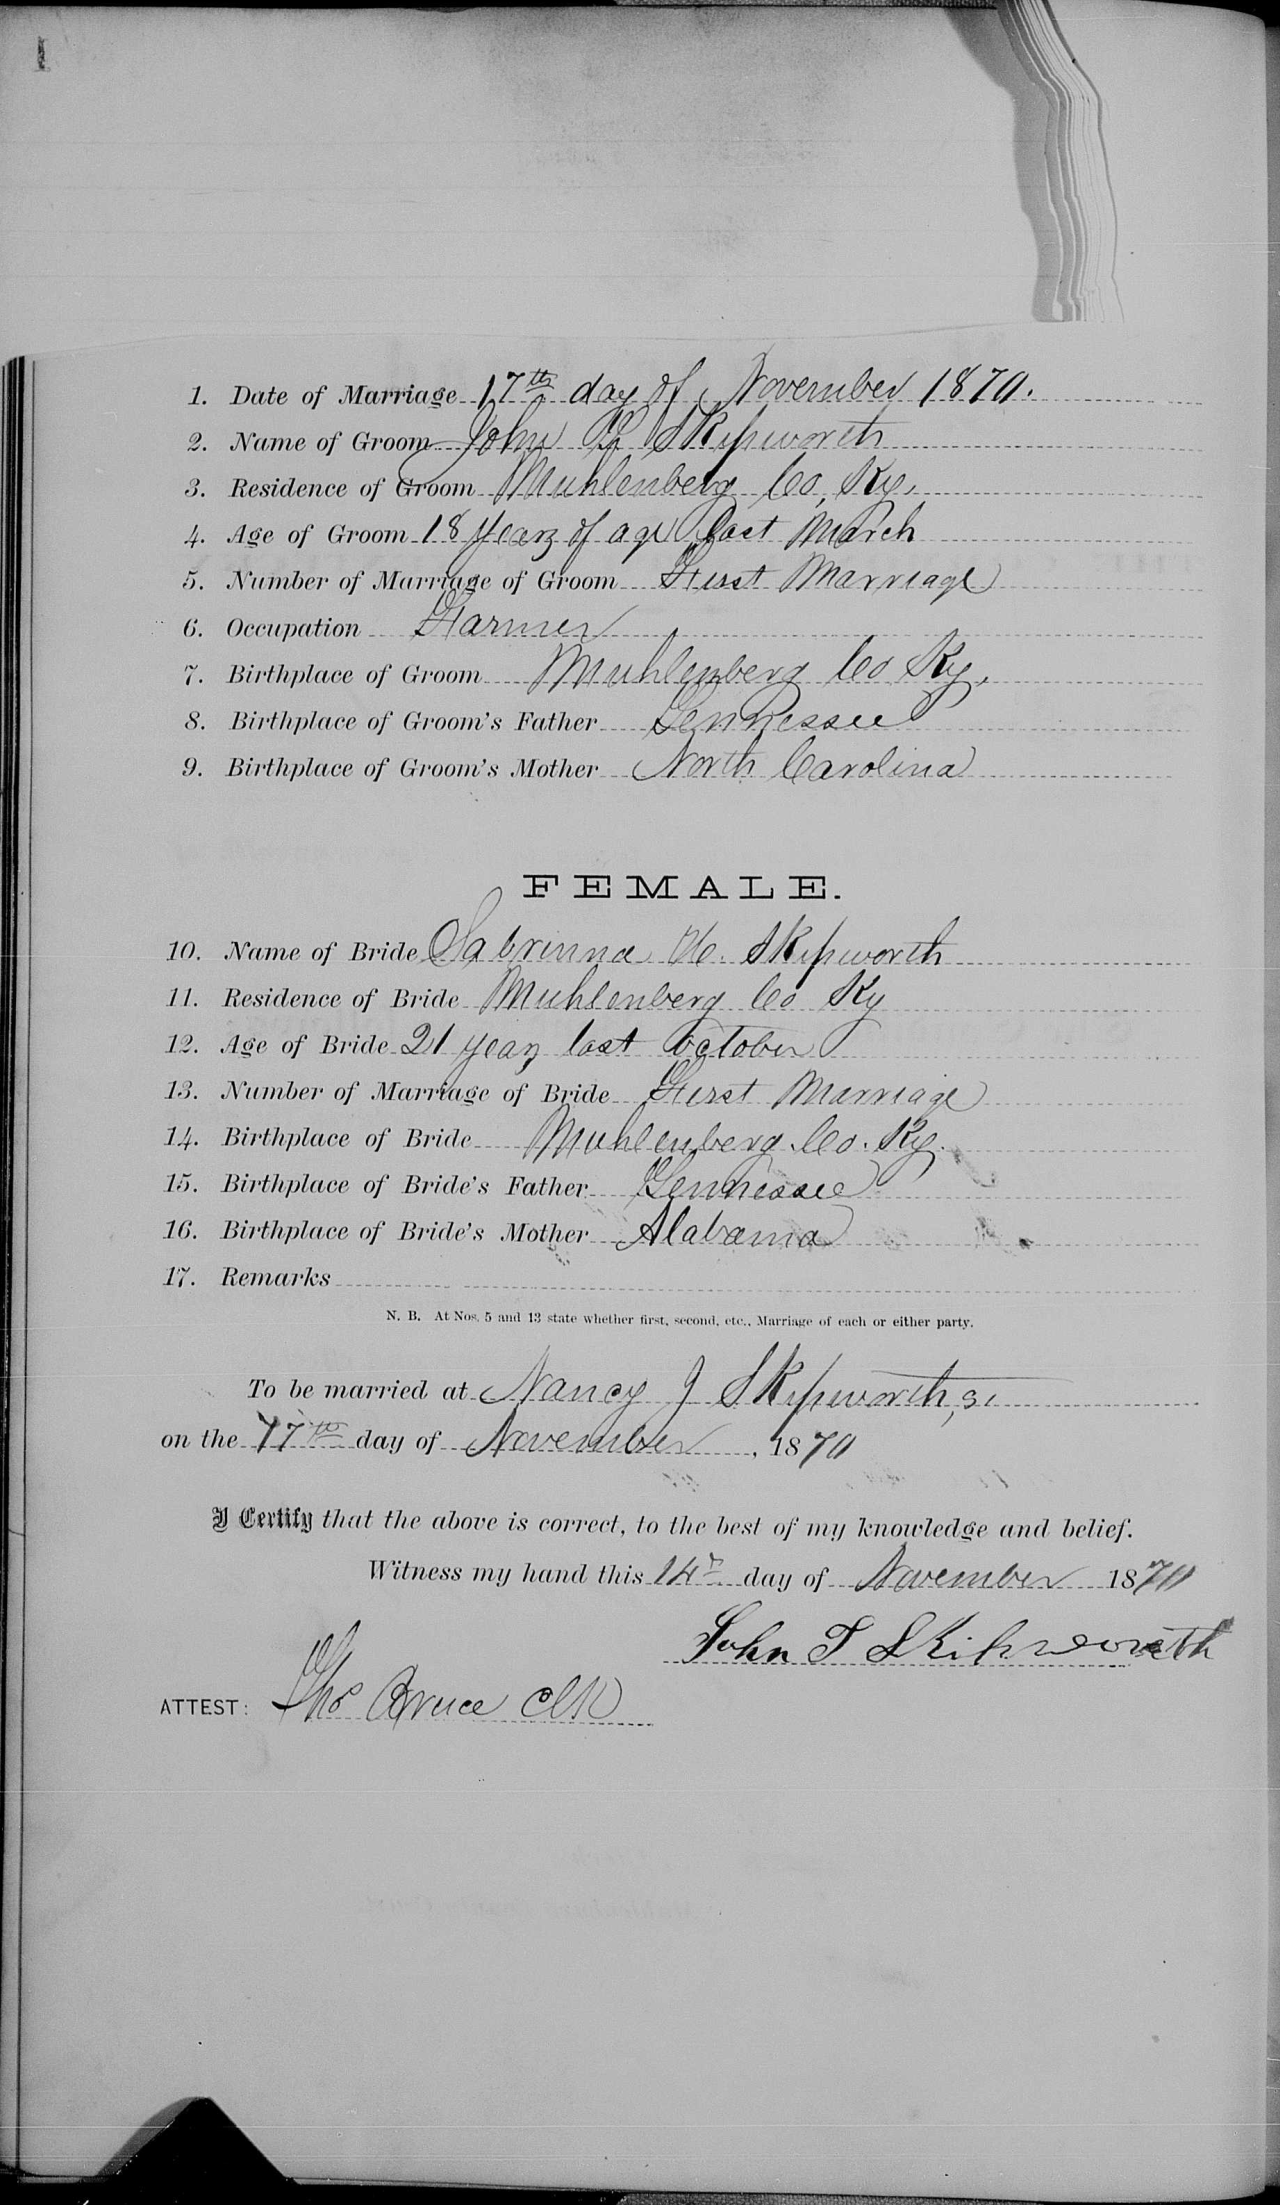 1. Date of Marriage 17th day of November 1870.
2. Name of Groom John T Skipworth
3. Residence of Groom Muhlenberg Co, Ky,
4. Age of Groom 18 years of age last March
5. Number of Marriage of Groom First Marriage
6. Occupation Farmer
7. Birthplace of Groom Muhlenberg Co Ky,
8. Birthplace of Groom's Father Tennessee
9. Birthplace of Groom's Mother North Carolina
FEMALE.
10. Name of Bride Sabrinna Skipworth
11. Residence of Bride Muhlenberg Co Ky
12. Age of Bride 21 years last October
13. Number of Marriage of Bride First Marriage
14. Birthplace of Bride Muhlenberg. Co. Ky.
15. Birthplace of Bride's Father Tennessee
16. Birthplace of Bride's Mother Alabama
17. Remarks
N. B. At Nos. 5 and 13 state whether first, second, etc., Marriage of each or either party.
To be married at Nancy J Skipworth,s
on the 17th day of November, 1870
I Certify that the above is correct, to the best of my knowledge and belief.
Witness my hand this 14th day of November 1870
John T Skipworth
ATTEST: Thos Bruce Clk